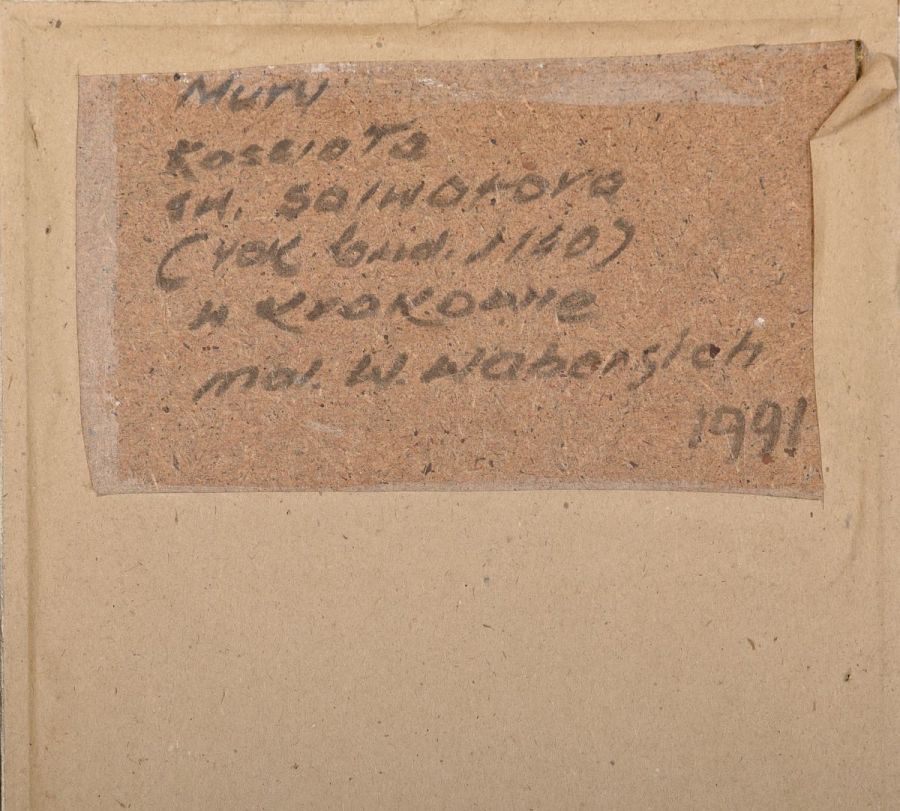 Mury
Kościoła
św. Salwatora
(rok bud. 1140)
w Krakowie
mal. W. Waberglich
1991